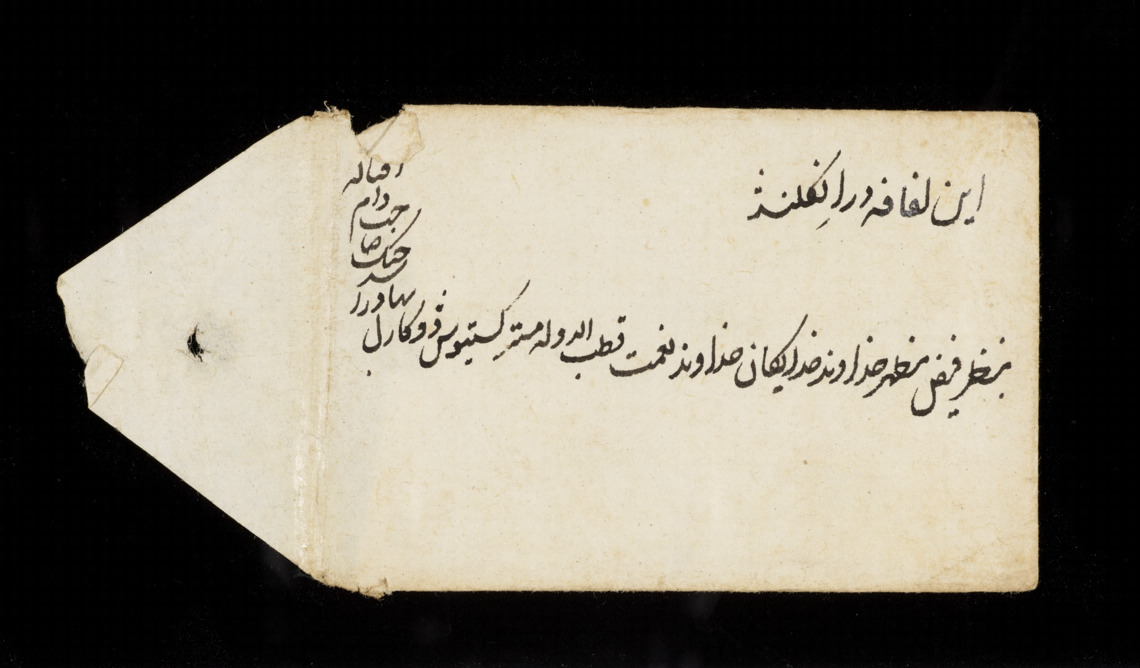 این لفافه در انگلند
بنظر فیض مظهر خداوند خدایگان خداوند نعمت قطب الدوله مستر کستیوس فوکارل
بهادر
جنگ صا
دام
اقباله